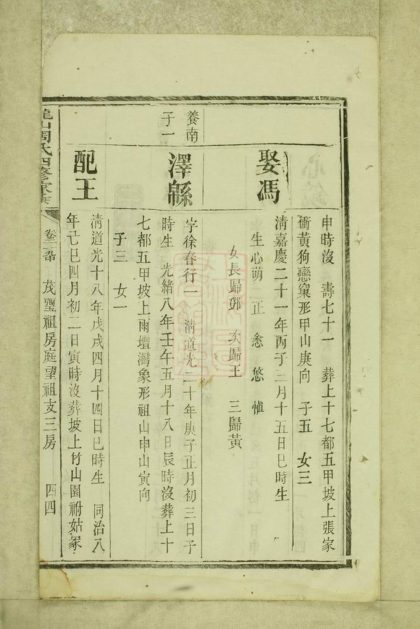 申時沒 壽七十一 葬上十七都五甲坡上張家
衝黃狗戀窠形甲山庚向 子五 女三
娶馮
清嘉慶二十一年丙子三月十五日巳時生
生心萌 正 悠 愃
女長歸鄧 次歸王 三歸黃
養南
子一
澤緜
字徐春行一 清道光二十年庚子正月初三日子
時生 光緒八年壬午五月十八日辰時沒葬上十
七都五甲坡上雨壇灣象形祖山申山寅向
子三 女一
配王
清道光十八年戊戌四月十四日巳時生 同治八
年己巳四月初二日寅時沒葬坡上竹山園祔姑冢
周氏四修家
卷二 茂璽祖房庭望祖支三房 四四